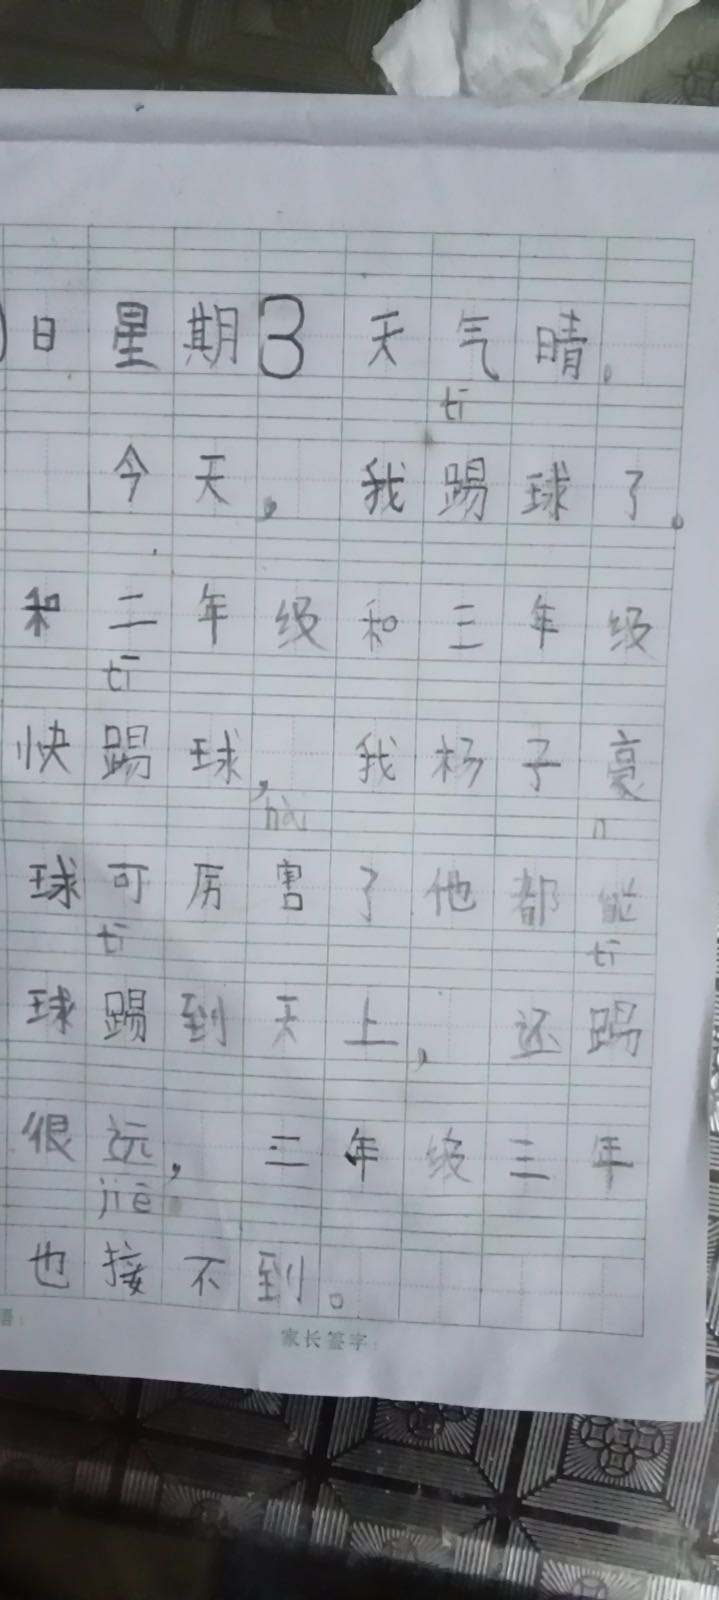 日星期3天气晴。
tī
今天，我踢球了。
和二年级和三年级
tī
快踢球，我杨子豪
hài n
球可厉害了他都能
tī tī
球踢到天上，还踢
很远，二年级三年
jiē
也接不到。
语：
家长签字：